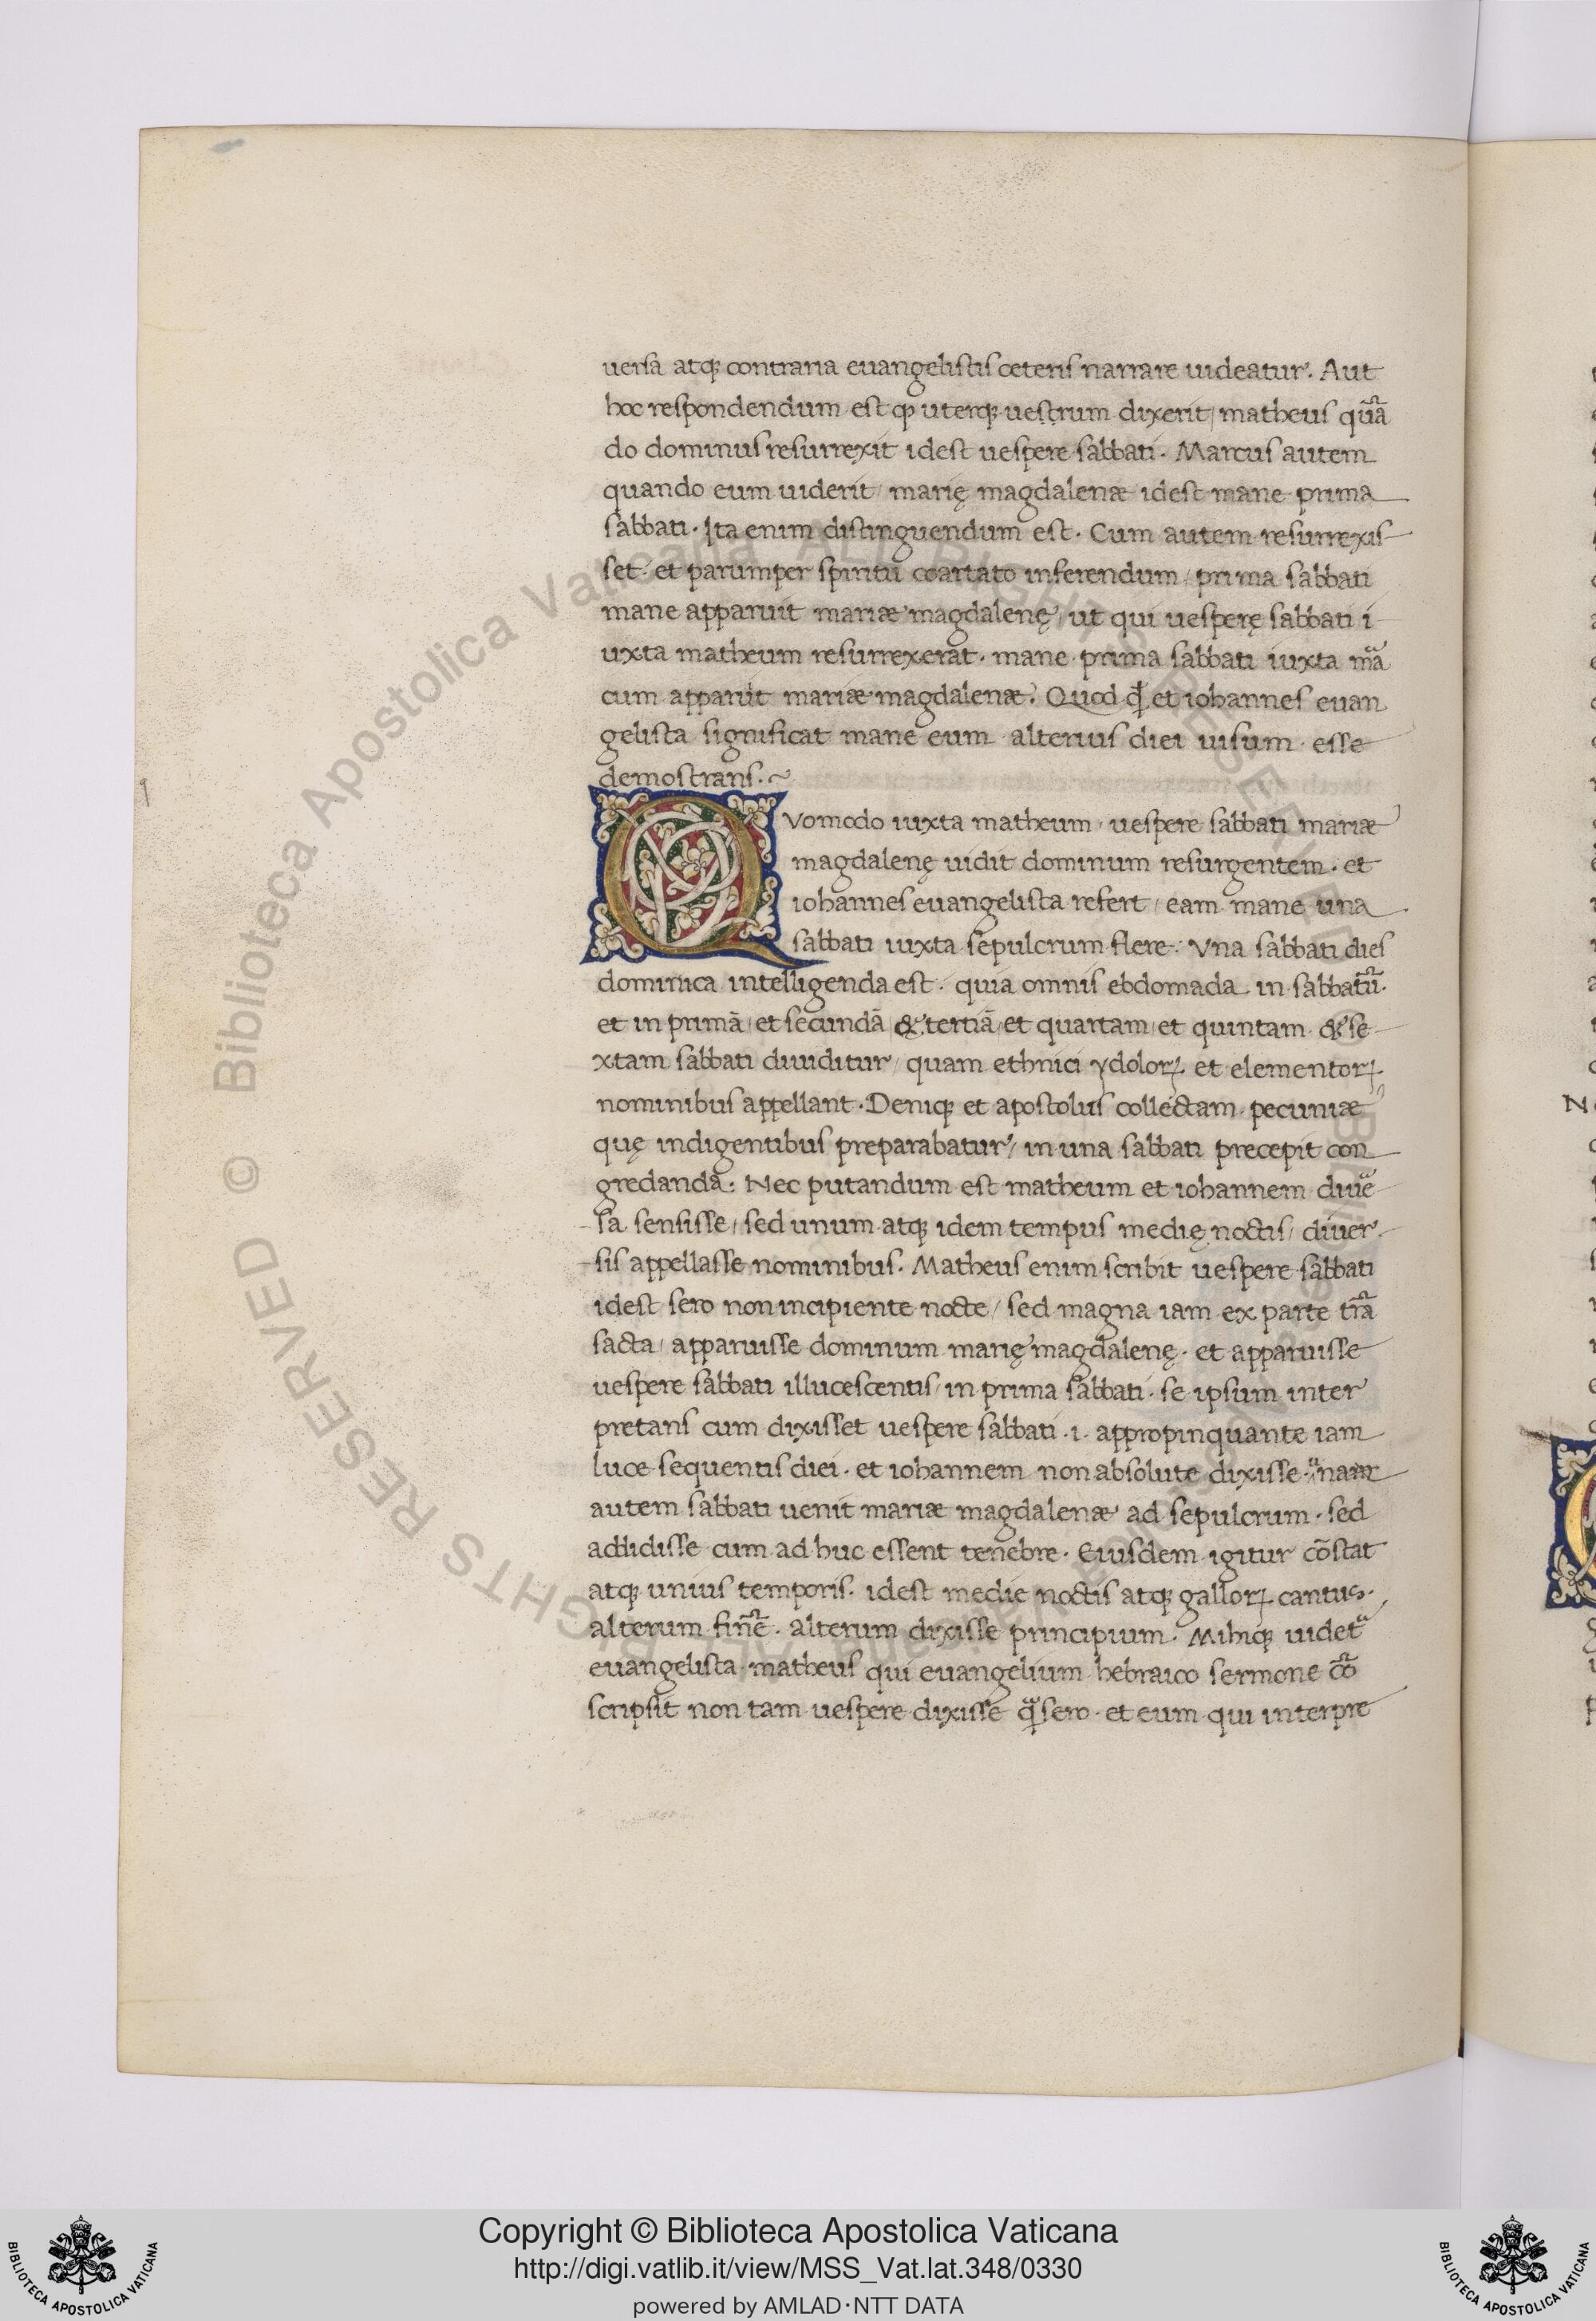 uersa atq; contraria euangelistis ceteris narrare uideatur. Aut
hoc respondendum est ꝙ uterq; uestrum dixerit / matheus qua̅
do dominus resurrexit idest uespere sabbati. Marcus autem
quando eum uiderit / marię magdalenæ idest mane prima
sabbati. Ita enim distinguendum est. Cum autem resurrexis
set. et parumper spiritu coartato inferendum / prima sabbati
mane apparuit mariæ magdalenę / ut qui uesperę sabbati i
uxta matheum resurrexerat. mane prima sabbati iuxta ma̅
cum apparuit mariæ magdalenæ. Quod q̅ et iohannes euan
gelista significat mane eum alterius diei uisum esse
demostrans. ~
Quomodo iuxta matheum / uespere sabbati mariæ
magdalenę uidit dominum resurgentem. et
iohannes euangelista refert / eam mane una
sabbati iuxta sepulcrum flere. Vna sabbati dies
dominica intelligenda est. quia omnis ebdomada in sabbatu̅.
et in prima̅ / et secunda̅ & tertia̅ / et quartam / et quintam & se
xtam sabbati diuiditur / quam ethnici ydoloꝝ et elementoꝝ
nominibus appellant. Deniq; et apostolus collectam pecuniæ
quę indigentibus preparabatur / in una sabbati precepit con
gredanda̅. Nec putandum est matheum et iohannem diue̅
sa sensisse / sed unum atq; idem tempus medię noctis / diuer
sis appellasse nominibus. Matheus enim scribit uespere sabbati
idest sero non incipiente nocte / sed magna iam ex parte tra̅
sacta / apparuisse dominum marię magdalenę. et apparuisse
uespere sabbati illucescentis / in prima sabbati. se ipsum inter
pretans cum dixisset uespere sabbati .i. appropinquante iam
luce sequentis diei. et iohannem non absolute dixisse.
autem sabbati uenit mariæ magdalenæ ad sepulcrum. sed
addidisse cum ad huc essent tenebre. Eiusdem igitur co̅stat
atq; unius temporis. idest medie noctis atq; galloꝝ cantus.
alterum fine̅. alterum dixisse principium. Mihiq; uidet᷑
euangelista matheus qui euangelium hebraico sermone co̅
scripsit non tam uespere dixisse q̅ sero. et eum qui interpre
Copyright © Biblioteca Apostolica Vaticana
http://digi.vatlib.it/view/MSS_Vat.lat.348/0330
powered by AMLAD·NTT DATA
BIBLIOTECA APOSTOLICA VATICANA
BIBLIOTECA APOSTOLICA VATICANA